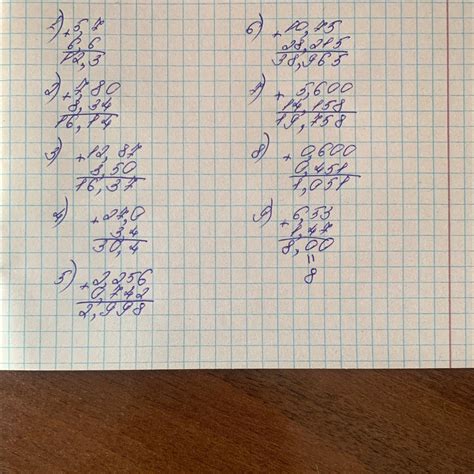 1) +5,7
6,6
12,3
2) +7,80
8,34
16,14
3) +12,87
3,50
16,37
4) +27,0
3,4
30,4
5) +2,256
0,742
2,998
6) +10,75
28,215
38,965
7) +5,600
14,158
19,758
8) +0,600
0,451
1,051
9) +6,53
1,47
8,00
=
8